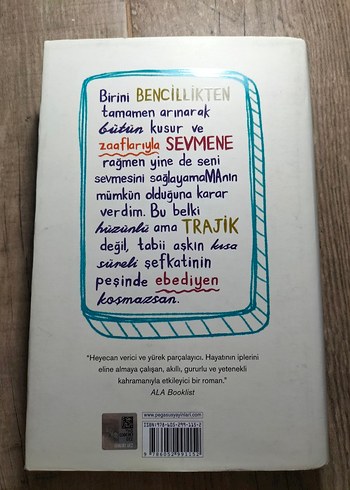 Birini BENCİLLİKTEN
tamamen arınarak
bütün kusur ve
zaaflarıyla SEVMENE
rağmen yine de seni
sevmesini sağlayamaMAnın
mümkün olduğuna karar
verdim. Bu belki
hüzünlü ama TRAJİK
değil, tabii aşkın kısa
süreli şefkatinin
peşinde ebediyen
koşmazsan.
"Heyecan verici ve yürek parçalayıcı. Hayatının iplerini
eline almaya çalışan, akıllı, gururlu ve yetenekli
kahramanıyla etkileyici bir roman."
ALA Booklist
www.pegasusyayinlari.com
ISBN: 978-605-299-115-2
9 786052 991152